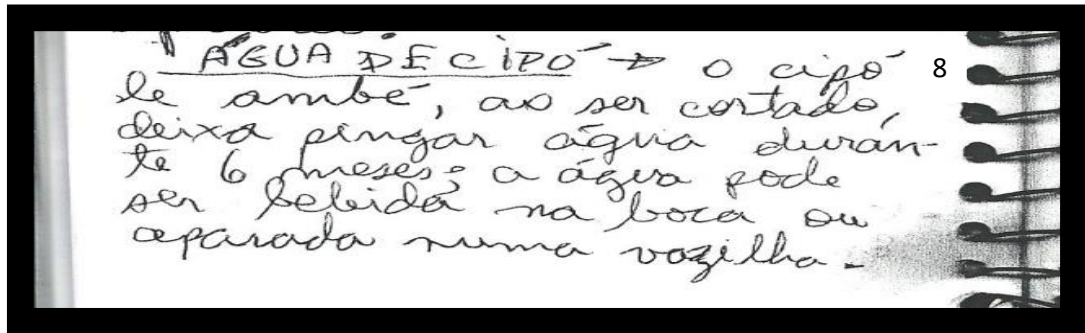 ÁGUA DE CIPÓ → o cipó 8
de ambé, ao ser cortado,
deixa pingar água duran-
te 6 meses; a água pode
ser bebida na boca ou
aparada numa vazilha.